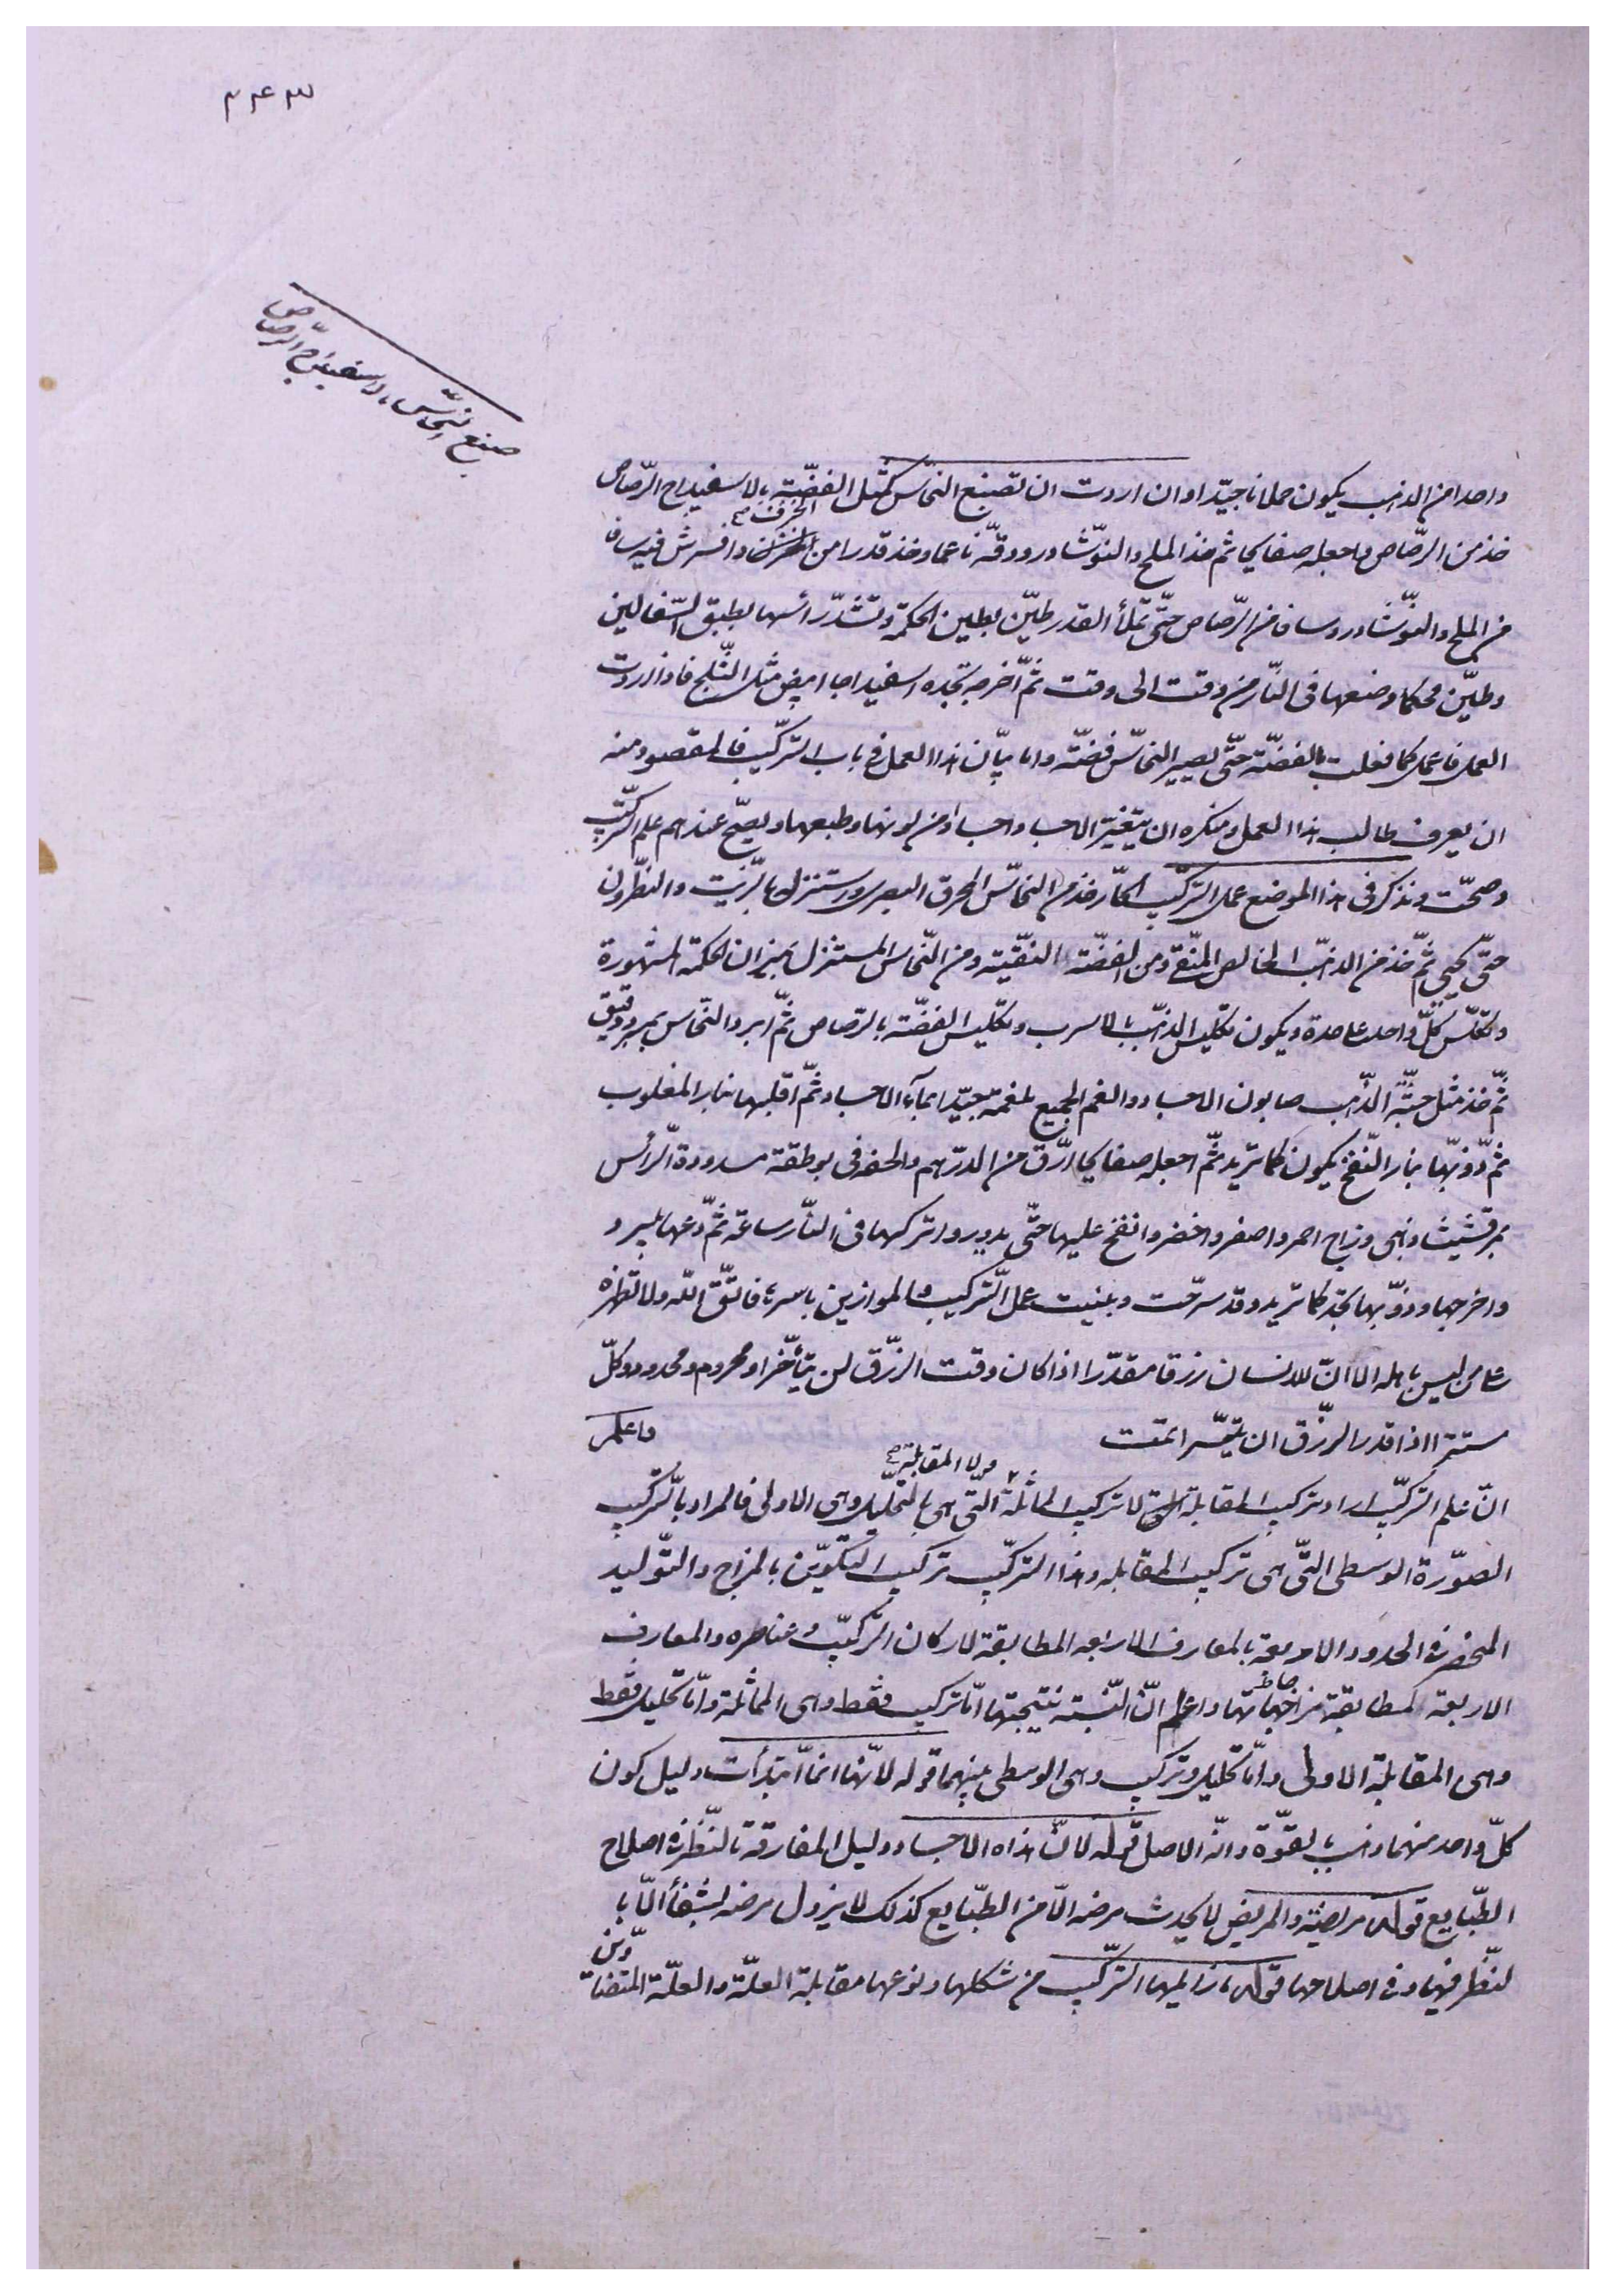 ۲۴۳
صنع النحّاس باسفيداج الرصّاص
واحدا من الذهب يكون حملانا جيّدا وان اردت ان تصنع النحّاس كمثل الفضّة بالاسفيداج الرّصاص
خذ من الرصّاص واجعله صفايح ثم خذ الملح والنوّشادر ودقّه ناعما وخذ قدرا من الخزف صح وافرش فيه سافا
من الملح والنوّشادر وسافا من الرّصاص حتّى تملأ القدر طيّن بطين الحكمة وتشدّ رأسها بطبق السّفالين
وطيّن محكما وضعها فى النّار من وقت الى وقت ثمّ اخرجه تجده اسفيداجا ابيض مثل الثّلج فاذا اردت
العمل فاعمل كما فعلت بالفضّة حتّى يصير النحّاس فضّة واما بيّان هذا العمل فى باب التركّيب فالمقصود منه
ان يعرف طالب هذا العمل ومنكره ان يتغيّر الاجساد واجسادا من لونها وطبعها ويصحّ عندهم علم التركّيب
وصحّت ونذكر فى هذا الموضع عمل التركّيب الحّار خذ من النحّاس المحرق البصرى واستنزله بالزّيت والنطّرون
حتّى يحيى ثمّ خذ من الذهّب الخالص المنّقى ومن الفضّة النقّية ومن النّحاس المستنزل بميزان الحكمة المشهورة
وتكلّس كلّ واحد على حدة ويكون تكليس الذهّب بالاسرب وتكليس الفضّة بالرّصاص ثمّ ابرد النحّاس بمبرد دقيق
ثمّ خذ مثل جثّة الذّهب صابون الاجساد والغم الجميع لغمة جيّدا بمآء الاجساد ثمّ اقلبها بنار المغلوب
ثمّ ذوّبها بنار النّفخ يكون كما تريد ثمّ اجعله صفايح ارّق من الدرّهم والحفه فى بوطقة مسدودة الرّأس
بمرقشيشا ذهبى وزاج احمر واصفر واخضر وانفخ عليها حتّى يدور واتركها فى النّار ساعة ثمّ دعها يبرد
واخرجها وذوّبها تجد كما تريد وقد سرّحت وبينت عمل التّركيب والموازين باسره فاتّق اللّه ولا تظهره
على من ليس باهله الا انّ للانسان رزقا مقدّرا اذا كان وقت الرّزق لن يتأخّر او محروم ومحدود وكلّ
ستترا اذا قدر الرزّق ان يتيّسر اتمت واعلم
انّ علم التركّيب اراد تركيب المقابلة لا تركيب المماثلة الّتى هى بالتحّليل وهى الاولى فالمراد بالتركّيب
ولا المقابلة صح
الصوّرة الوسطى التّى هى تركيب المقابله وهذا التركّيب تركيب التكوّين بالمزاج والتوّليد
المنحصر فى الحدود الاربعة بالمعارف الاربعه المطابقة لاركان التركّيب وعناصره والمعارف
الاربعة المطابقة مزاجها واعلم انّ النّسبة نتيجتها امّا تركيب فقط وهى المماثلة وامّا تحليل فقط
وهى المقابلة الاولى وامّا تحليل وتركيب وهى الوسطى منهما قوله لانّها انمّا ابتدأت دليل كون
كلّ واحد منهما ذهب بالقوّة وانّه الاصل قوله لانّ هذه الاجساد ودليل المفارقة بالنّظر فى اصلاح
الطّبايع قوله مريضة والمريض لا يحدث مرضه الاّ من الطبّايع كذلك لا يزول مرضه لشفأ الاّ با
لنّظر فيها وفى اصلاحها قوله التركّيب من شكلها ونوعها مقابلة العلّة والعلّة المتضادّين